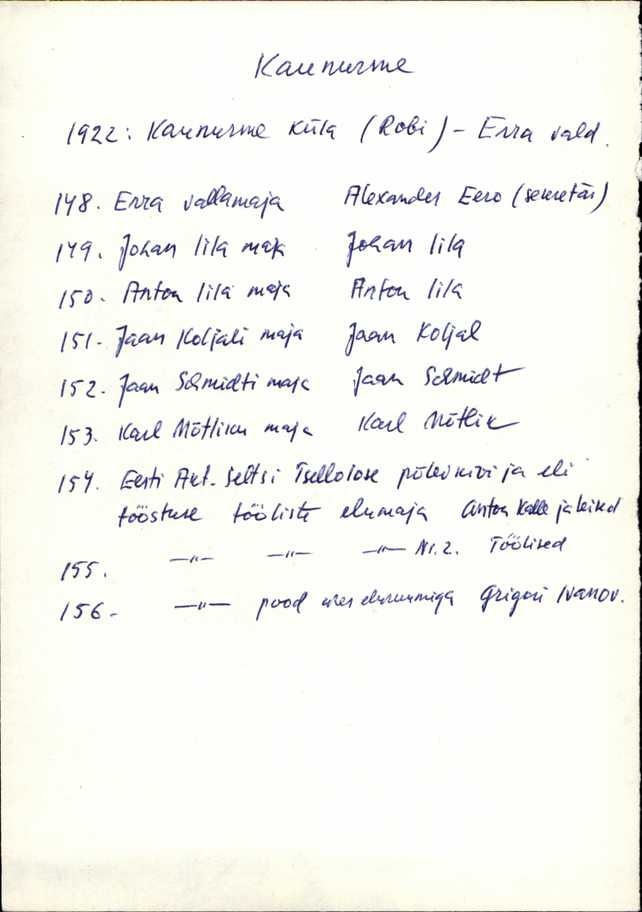 Kaunurme
1922: Kaunurme küla (Robi) - Erra vald.
148. Erra vallamaja Alexander Eero (sekretär)
149. Johan Iila maja Johan Iila
150. Anton Iila maja Anton Iila
151. Jaan Koljali maja Jaan Koljal
152. Jaan Schmidti maja Jaan Schmidt
153. Karl Mõtliku maja Karl Mõtlik
154. Eesti Akt. Seltsi Tsellolose põlevkivi ja õli
tööstuse tööliste elumaja Anton Kalle ja teised
155. —"— —"— —"— Nr. 2. Töölised
156. —"— pood eluruumiga Grigori Ivanov.